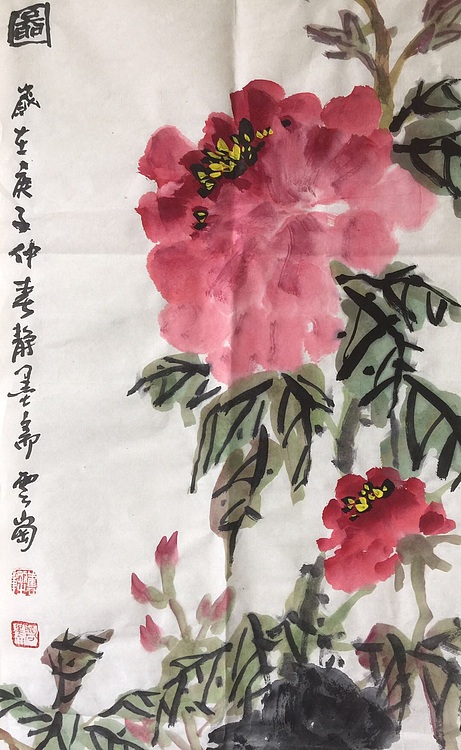 圖
歲在庚子仲春静墨斋雲崗